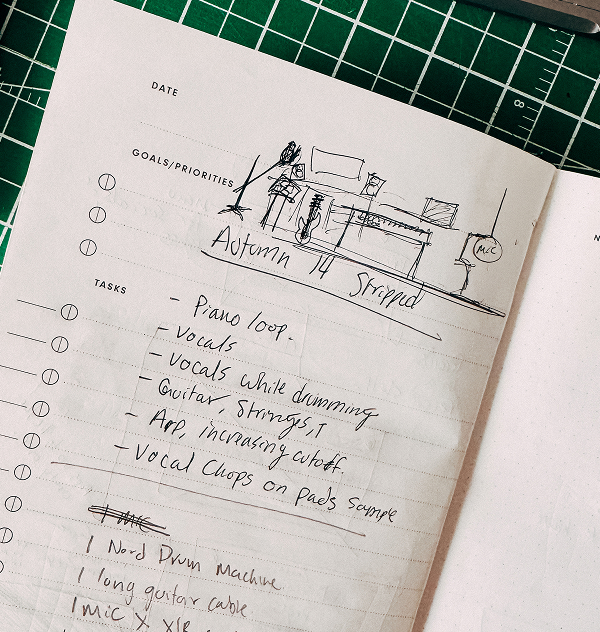 8
DATE
GOALS/PRIORITIES
MIC
Autumn 14 Stripped
TASKS
- Piano loop.
- Vocals
- Vocals while drumming
- Guitar, Stringes,
- Arp, increasing cutoff.
- Vocal Chops on pads sample
1 MIC
1 Nord Drum Machine
1 long guitar cable
1 Mic X XLR
N